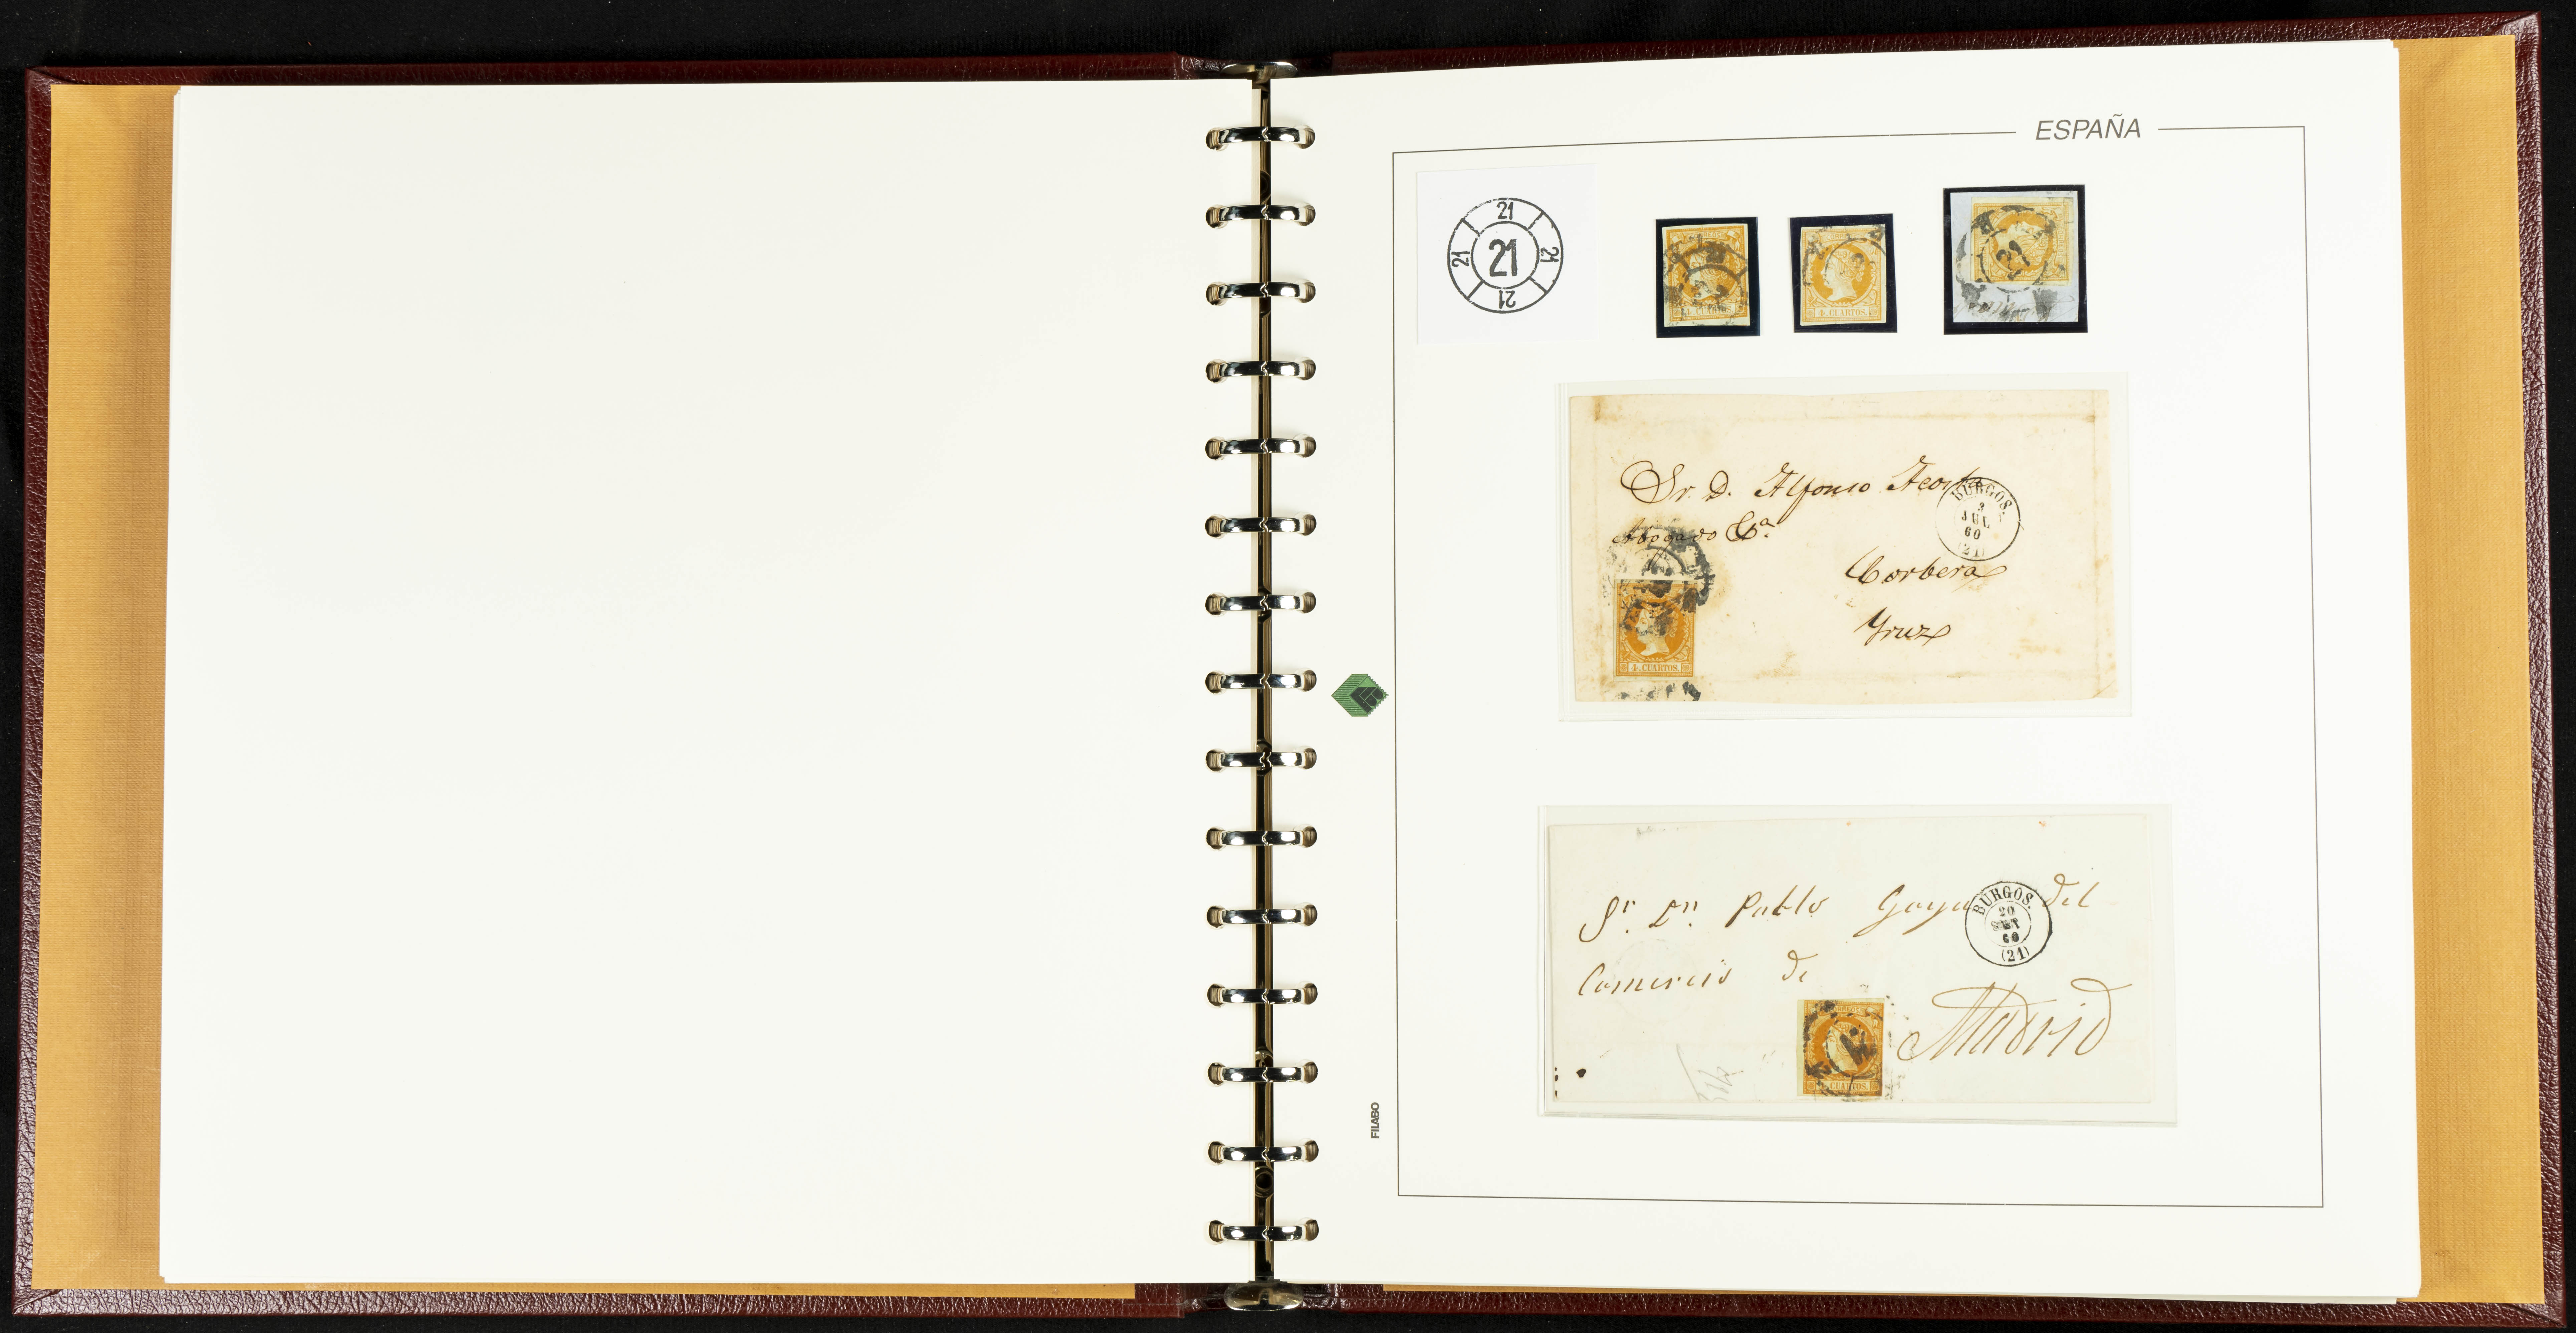 ESPAÑA
21
21
21
21
21
4 CUARTOS.
21
Sr. D. Alfonso Acosta
Abogado &a.
Corbera
BURGOS.
3
JUL
60
(21)
4 CUARTOS.
Sr. Dn. Pablo Goya del
Comercio de
Madrid
BURGOS.
20
SET
60
(21)
CUARTOS.
FILABO